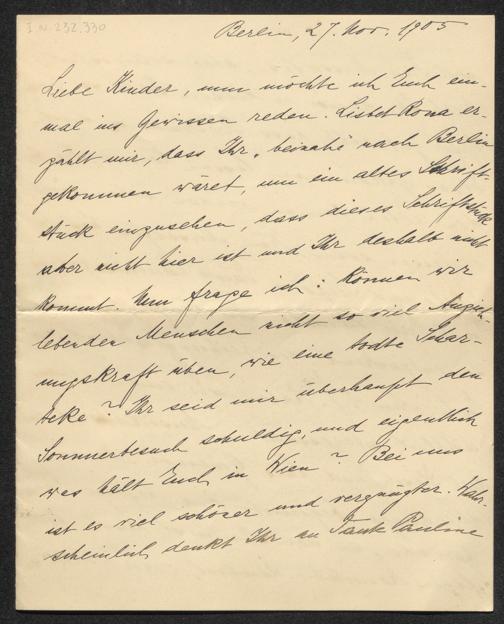 I.N. 232.330
Berlin, 27. Nov. 1905
Liebe Kinder, nun möchte ich Euch ein-
mal ins Gewissen reden. Lisbet Rona er-
zählt mir, dass Ihr „beinahe nach Berlin
gekommen wäret, um ein altes Schrift-
stück einzusehen, dass dieses Schriftstück
aber nicht hier ist und Ihr deshalb nicht
kommt. Nun frage ich: Können wir
lebenden Menschen nicht so viel
ungskraft üben, wie eine todte Schar-
teke? Ihr seid mir überhaupt den
Sommerbesuch schuldig, und eigentlich
was hält Euch in Wien? Bei uns
ist es viel schöner und vergnügter. Wahr-
scheinlich denkt Ihr an Tante Pauline